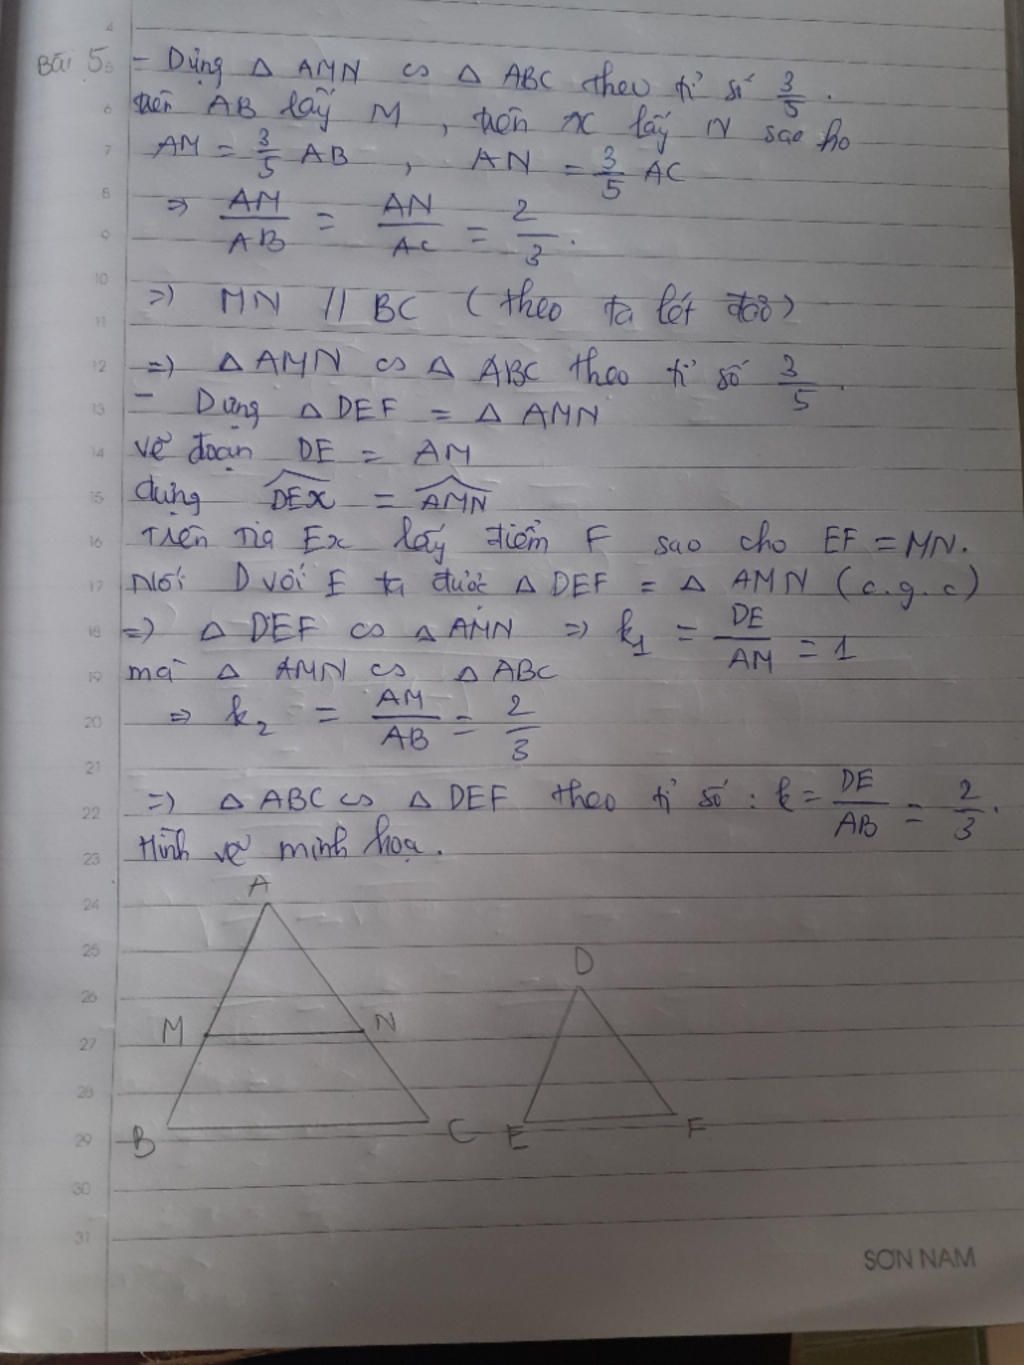 Bài 5:
- Dựng △ AMN ∽ △ ABC theo tỉ số 3/5.
trên AB lấy M, trên AC lấy N sao cho
AM = 3/5 AB, AN = 3/5 AC
⇒ AM/AB = AN/AC = 2/3.
⇒ MN // BC (theo ta lét đảo)
⇒ △ AMN ∽ △ ABC theo tỉ số 3/5.
- Dựng △ DEF = △ AMN
vẽ đoạn DE = AM
dựng DEx = AMN
Trên tia Ex lấy điểm F sao cho EF = MN.
Nối D với E ta được △ DEF = △ AMN (c.g.c)
⇒ △ DEF ∽ △ AMN ⇒ k1 = DE/AM = 1
mà △ AMN ∽ △ ABC
⇒ k2 = AM/AB = 2/3
⇒ △ ABC ∽ △ DEF theo tỉ số: k = DE/AB = 2/3.
Hình vẽ minh họa.
A
D
M N
B C E F
4
5
6
7
8
9
10
11
12
13
14
15
16
17
18
19
20
21
22
23
24
25
26
27
28
29
30
31
SON NAM